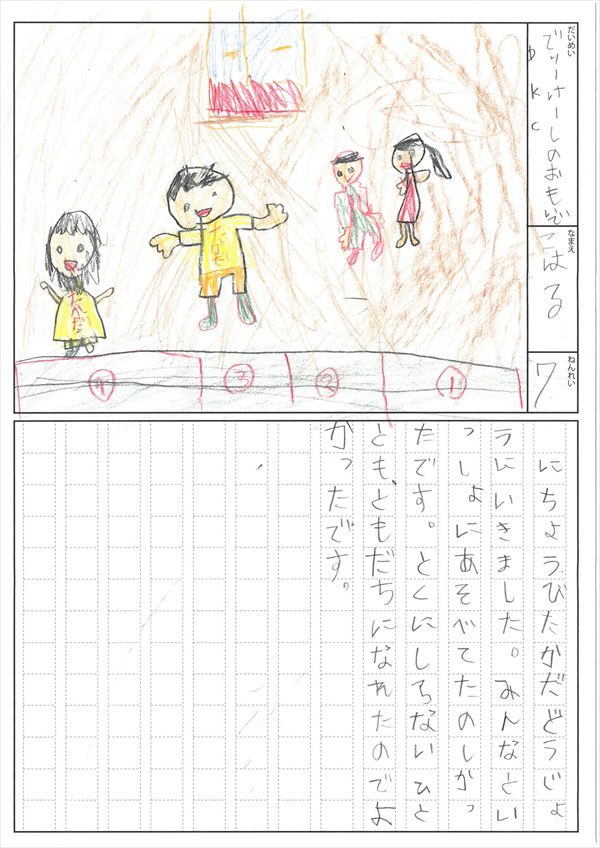 だいめい
でぃーけーしのおもいで
DKC
なまえ
こはる
ねんれい
7
たかだ
たかだ
①
②
③
④
にちようびたかだどうじょ
うにいきました。みんなとい
っしょにあそべてたのしかっ
たです。とくにしらないひと
とも、ともだちになれたのでよ
かったです。